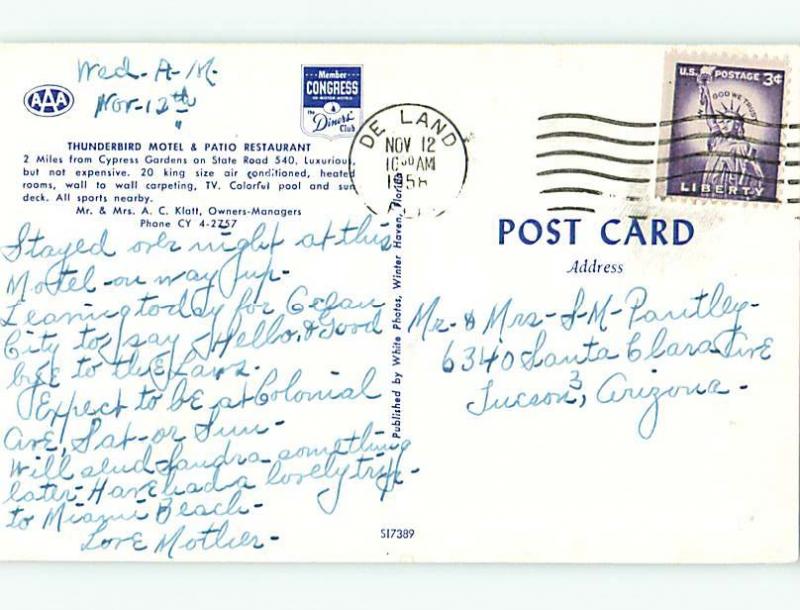 Wed-A-M.
Nov-12th
AAA
Member
CONGRESS
OF MOTOR HOTELS
the
Diners'
Club
THUNDERBIRD MOTEL & PATIO RESTAURANT
2 Miles from Cypress Gardens on State Road 540, Luxurious,
but not expensive. 20 king size air conditioned, heated
rooms, wall to wall carpeting, TV. Colorful pool and sun
deck. All sports nearby.
Mr. & Mrs. A. C. Klatt, Owners-Managers
Phone CY 4-2757
Stayed over night at this
Motel-on way up-
Leaving today for
City to say Hello, & Good
bye to the
Expect to be at Colonial
Ave, Sat-or Sun-
Will send Sandra something
later-Have had a lovely trip-
to Miami Beach-
Love Mother-
Published by White Photos, Winter Haven, Florida
DE LAND
NOV 12
10 30 AM
1958
U.S. POSTAGE 3¢
IN GOD WE TRUST
LIBERTY
POST CARD
Address
Mr-& Mrs-S-M-Pautley-
6340 Santa Clara Ave
Tucson, 3, Arizona-
S17389